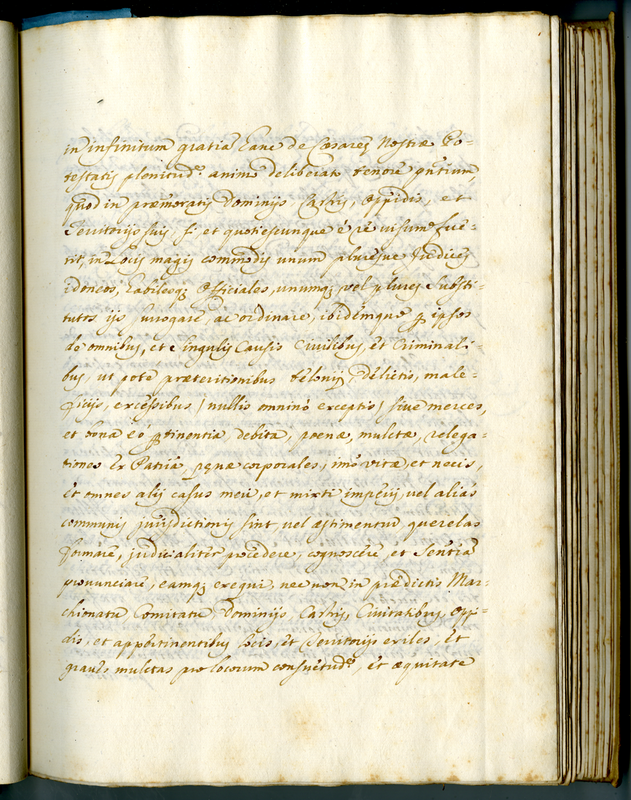 in infinitum gratia Eaue de Cæsareæ Nostræ Po-
testatis plenitud.e animo deliberato tenore pntium,
quod in præmoratis Dominijs Castris, Oppidis, et
Territorijs suis, si et quotiescunque è rè visum fue-
rit, in Locis magis commodis unum pluresque Iudices
idoneos, habilesq; Officiales, unumq; vel plures Substi-
tutos ijs surrogare ac ordinare, ibidemque p ipsos
de omnibus, et singulis Causis Civilibus, et Criminali-
bus, ut potè præteritionibus telonij, delictis, male-
ficijs, excessibus / nullis omninò exceptis / sive merces,
et bona eò ptinentia debita, poenæ, mulctæ, relega-
tiones ex Patria, pænæ corporales, imò vitæ et necis,
et omnes alij casus meri, et mixti imperij, vel aliàs
communis jurisdictionis sint, vel æstimentur querelas
formare, judicialiter procedere, cognoscere et Sentia
pronunciare, eamq; exequi, nec non in prædictis Mar-
chionatu Comitatu, Dominijs, Castris, Civitatibus, Oppi-
dis, et appertinentibus Locis, et Territorijs exiles, et
graves mulctas pro locorum consuetud.e, et æquitate